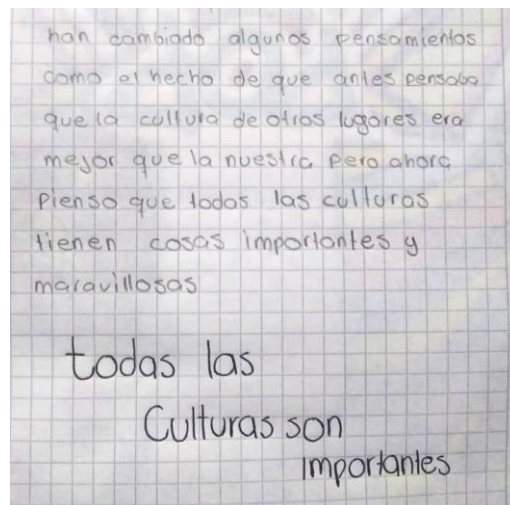 han cambiado algunos pensamientos
como el hecho de que antes pensaba
que la cultura de otros lugares era
mejor que la nuestra pero ahora
pienso que todas las culturas
tienen cosas importantes y
maravillosas
todas las
Culturas son
importantes